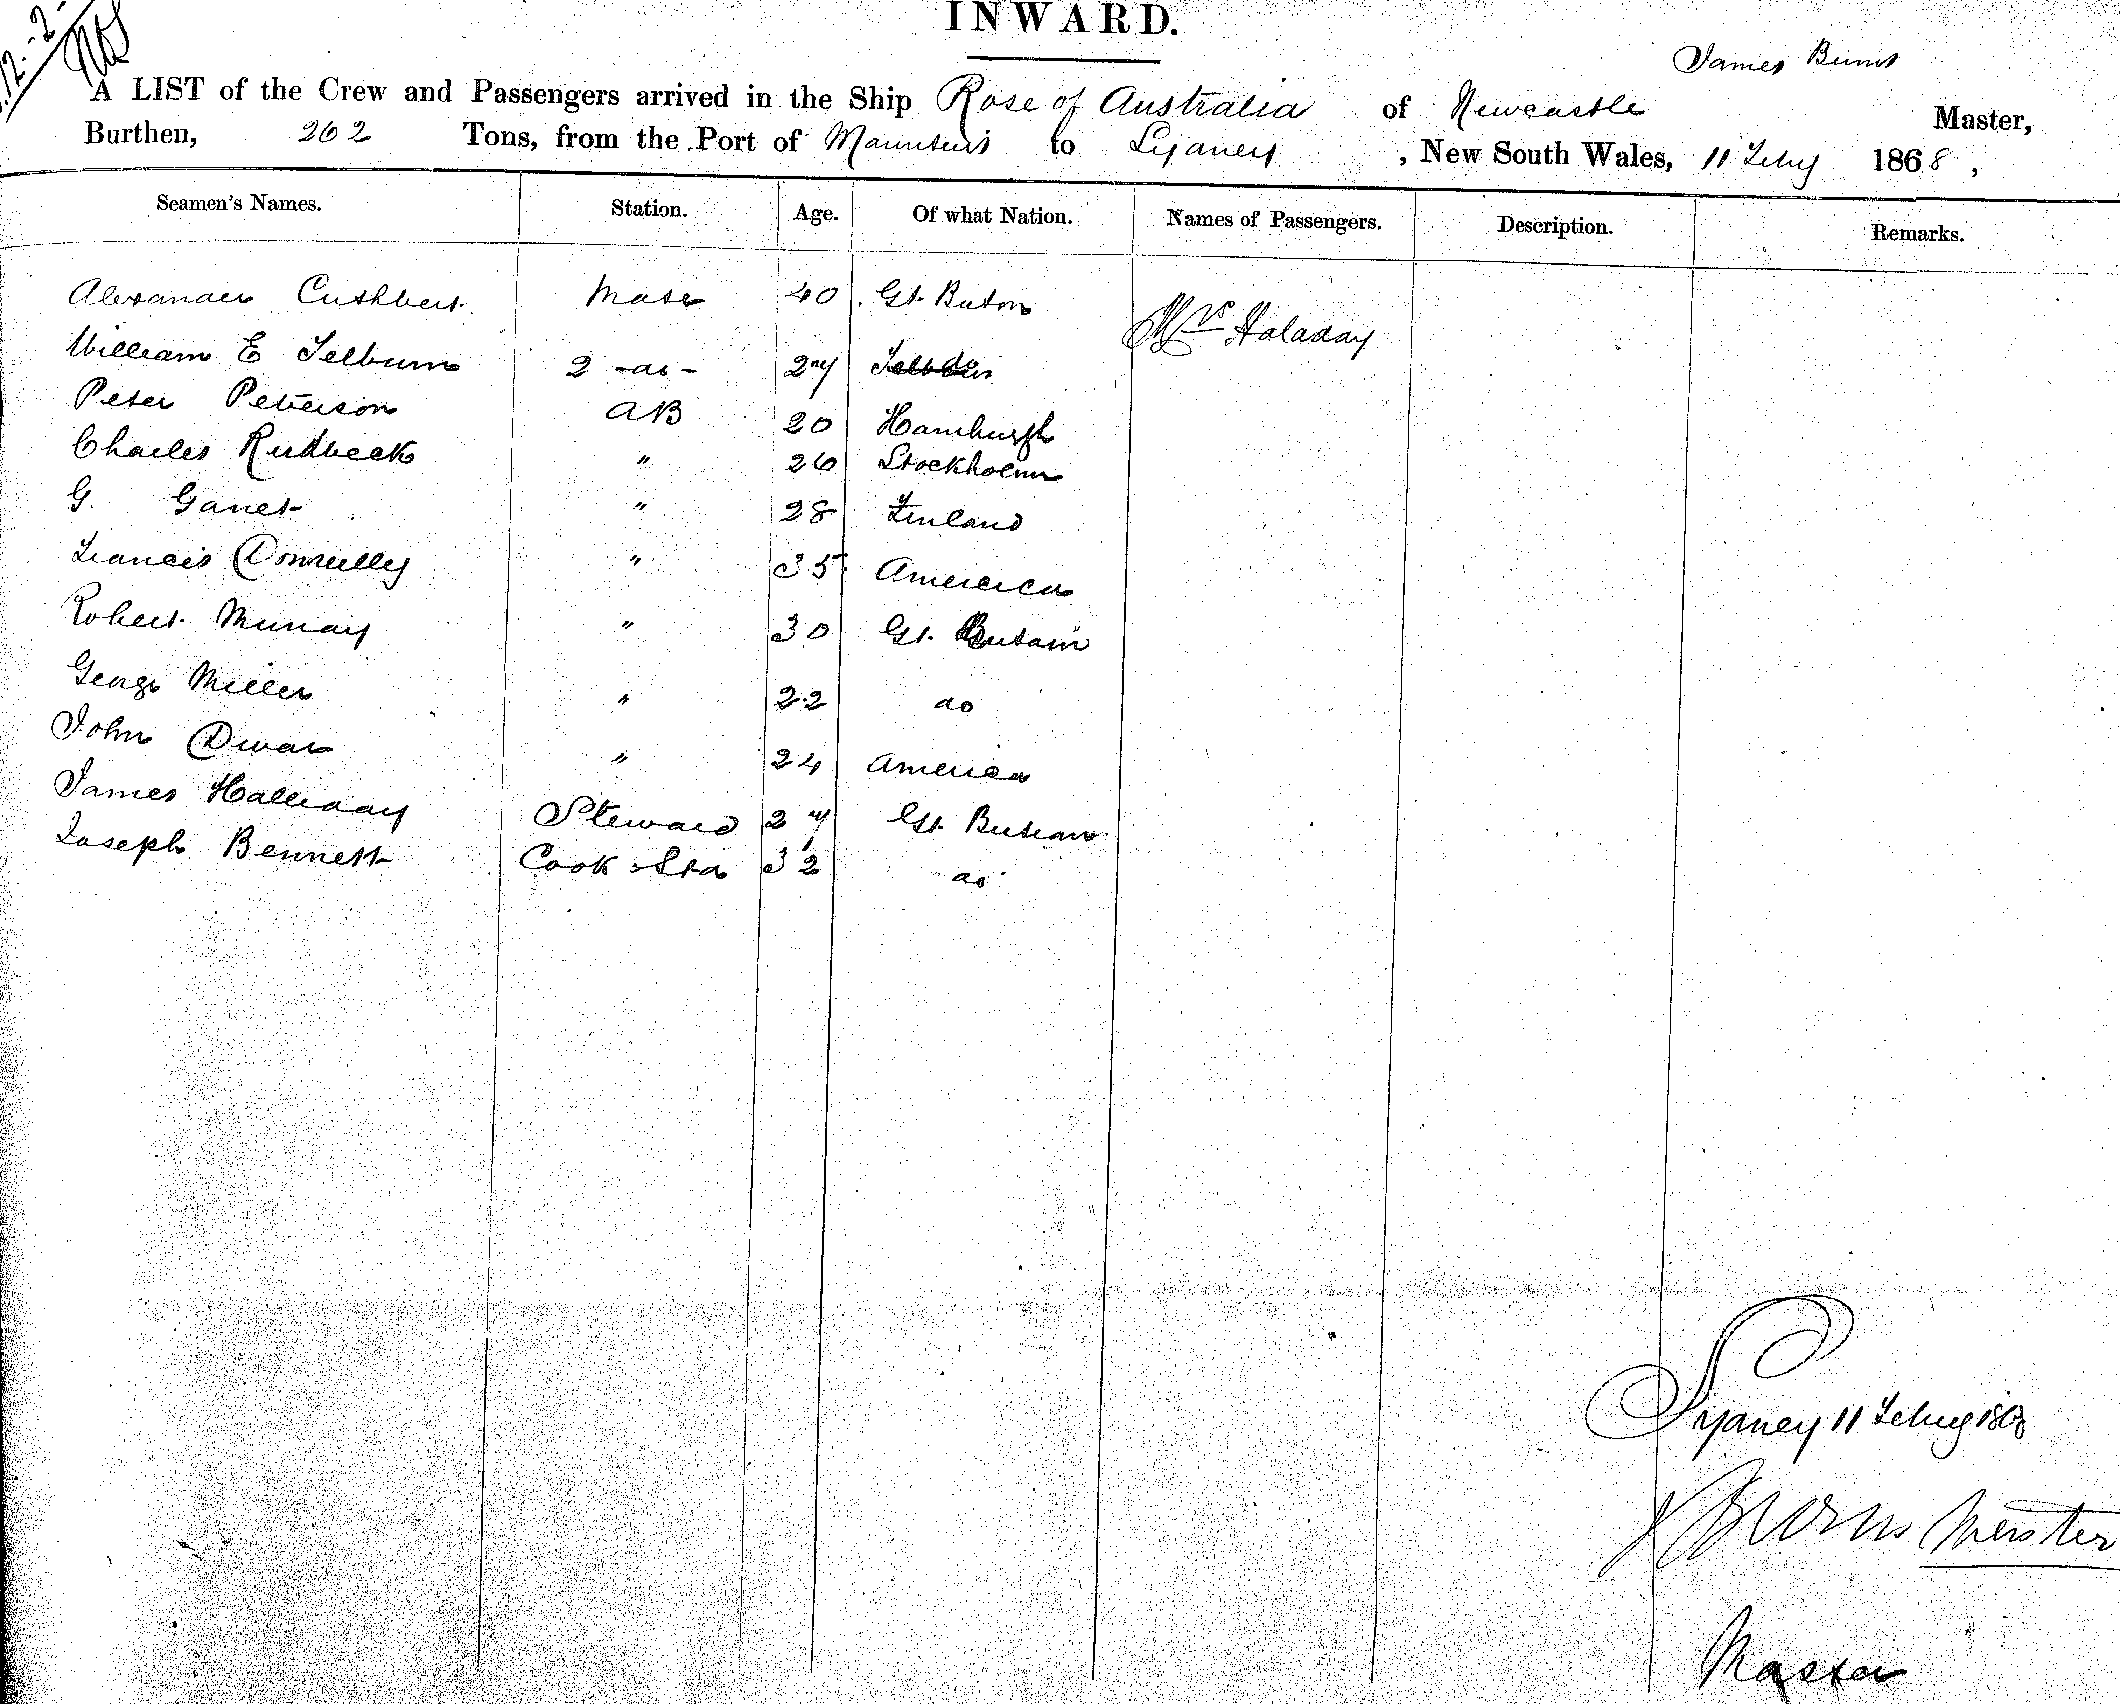 12-2-
INWARD.
James Burns
A LIST of the Crew and Passengers arrived in the Ship Rose of Australia of Newcastle Master,
Burthen, 262 Tons, from the Port of Mauritius to Sydney, New South Wales, 11 Feby 1868,
Seamen's Names. Station. Age. Of what Nation. Names of Passengers. Description. Remarks.
Alexander Cuthbert Mate 40 Gt. Britain Mrs Haladay
William E 2 -do- 27
Peter Peterson AB 20 Hamburgh
Charles Rudbeck " 26 Stockholm
G. " 28 Finland
Francis Donnelly " 35 America
Robert Murray " 30 Gt. Britain
George Miller " 22 do
John " 24 America
James Halliday Steward 27 Gt. Britain
Joseph Bennett Cook 32 do
Sydney 11 Feby 1868
Master